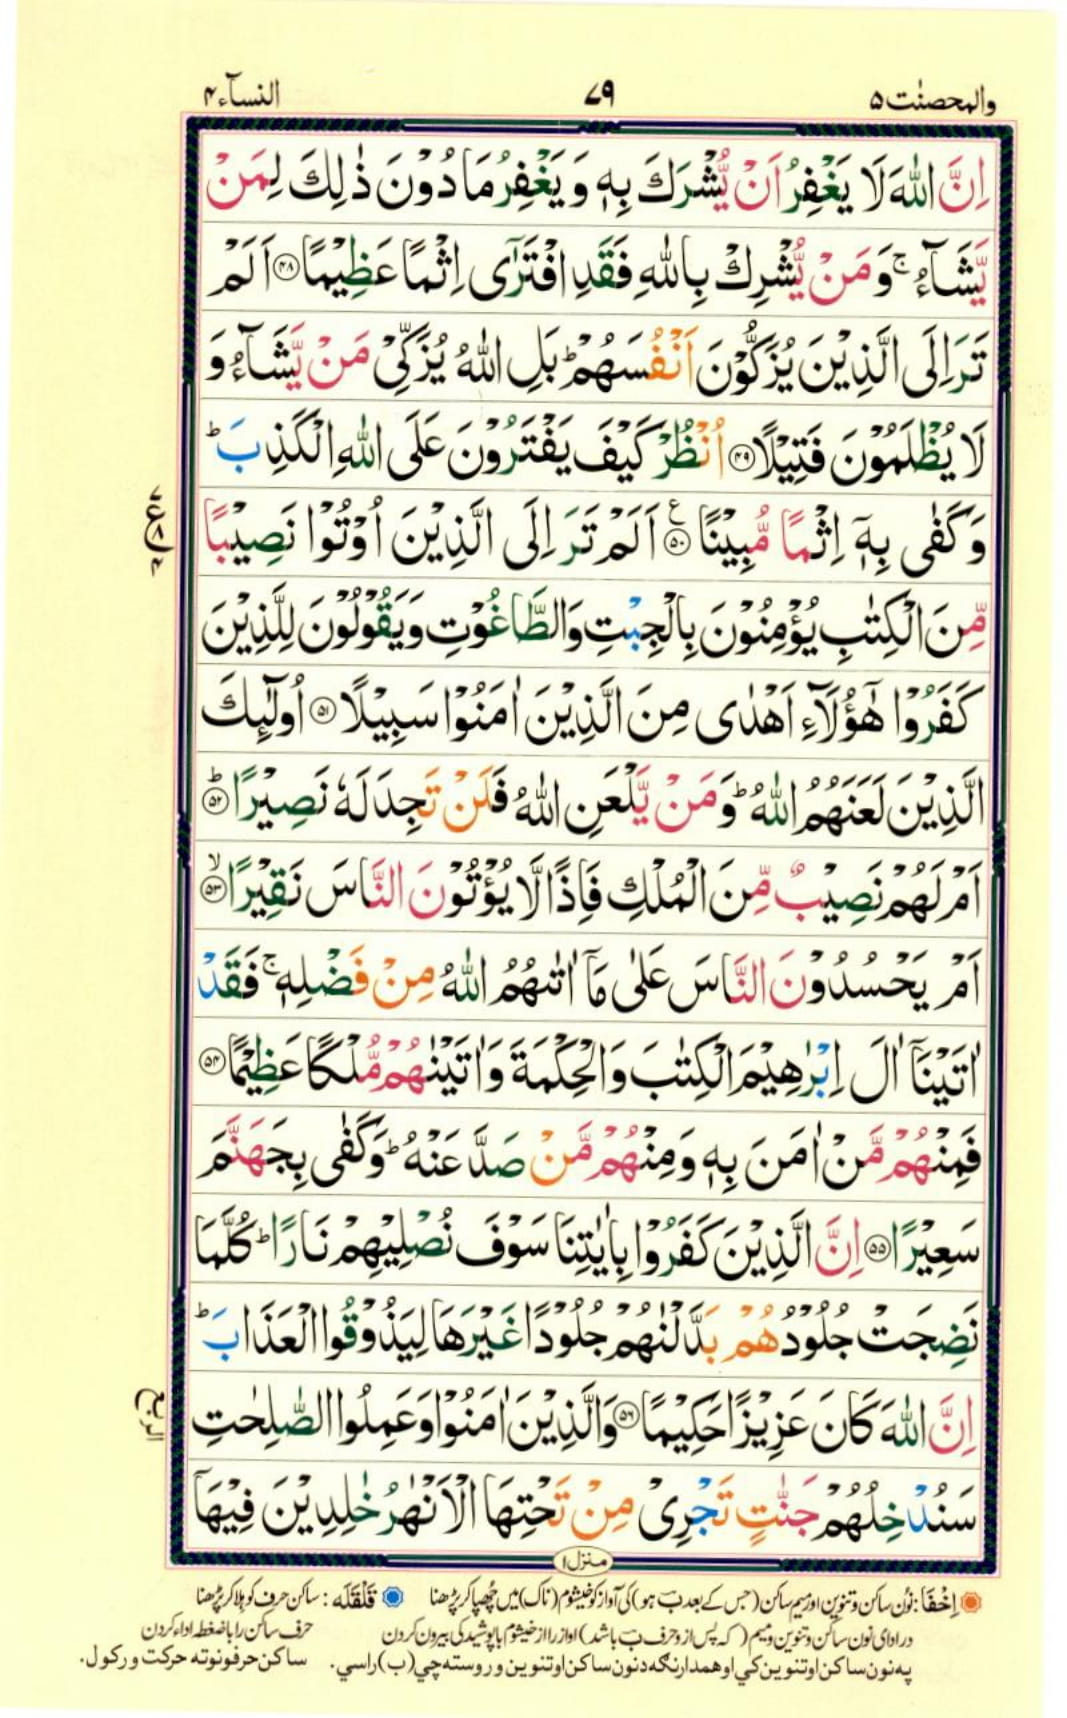 والمحصنٰت ۵
۷۹
النسآء ۴
اِنَّ اللّٰهَ لَا يَغْفِرُ اَنْ يُّشْرَكَ بِهٖ وَ يَغْفِرُ مَا دُوْنَ ذٰلِكَ لِمَنْ
يَّشَآءُ ۚ وَ مَنْ يُّشْرِكْ بِاللّٰهِ فَقَدِ افْتَرٰۤى اِثْمًا عَظِيْمًا ﴿۴۸﴾ اَلَمْ
تَرَ اِلَى الَّذِيْنَ يُزَكُّوْنَ اَنْفُسَهُمْ ؕ بَلِ اللّٰهُ يُزَكِّيْ مَنْ يَّشَآءُ وَ
لَا يُظْلَمُوْنَ فَتِيْلًا ﴿۴۹﴾ اُنْظُرْ كَيْفَ يَفْتَرُوْنَ عَلَى اللّٰهِ الْكَذِبَ ؕ
وَ كَفٰى بِهٖۤ اِثْمًا مُّبِيْنًا ﴿۵۰﴾ ع اَلَمْ تَرَ اِلَى الَّذِيْنَ اُوْتُوْا نَصِيْبًا
مِّنَ الْكِتٰبِ يُؤْمِنُوْنَ بِالْجِبْتِ وَ الطَّاغُوْتِ وَ يَقُوْلُوْنَ لِلَّذِيْنَ
كَفَرُوْا هٰۤؤُلَآءِ اَهْدٰى مِنَ الَّذِيْنَ اٰمَنُوْا سَبِيْلًا ﴿۵۱﴾ اُولٰٓئِكَ
الَّذِيْنَ لَعَنَهُمُ اللّٰهُ ؕ وَ مَنْ يَّلْعَنِ اللّٰهُ فَلَنْ تَجِدَ لَهٗ نَصِيْرًا ؕ ﴿۵۲﴾
اَمْ لَهُمْ نَصِيْبٌ مِّنَ الْمُلْكِ فَاِذًا لَّا يُؤْتُوْنَ النَّاسَ نَقِيْرًا ۙ ﴿۵۳﴾
اَمْ يَحْسُدُوْنَ النَّاسَ عَلٰى مَاۤ اٰتٰىهُمُ اللّٰهُ مِنْ فَضْلِهٖ ۚ فَقَدْ
اٰتَيْنَاۤ اٰلَ اِبْرٰهِيْمَ الْكِتٰبَ وَ الْحِكْمَةَ وَ اٰتَيْنٰهُمْ مُّلْكًا عَظِيْمًا ﴿۵۴﴾
فَمِنْهُمْ مَّنْ اٰمَنَ بِهٖ وَ مِنْهُمْ مَّنْ صَدَّ عَنْهُ ؕ وَ كَفٰى بِجَهَنَّمَ
سَعِيْرًا ﴿۵۵﴾ اِنَّ الَّذِيْنَ كَفَرُوْا بِاٰيٰتِنَا سَوْفَ نُصْلِيْهِمْ نَارًا ؕ كُلَّمَا
نَضِجَتْ جُلُوْدُهُمْ بَدَّلْنٰهُمْ جُلُوْدًا غَيْرَهَا لِيَذُوْقُوا الْعَذَابَ ؕ
اِنَّ اللّٰهَ كَانَ عَزِيْزًا حَكِيْمًا ﴿۵۶﴾ وَ الَّذِيْنَ اٰمَنُوْا وَ عَمِلُوا الصّٰلِحٰتِ
سَنُدْخِلُهُمْ جَنّٰتٍ تَجْرِيْ مِنْ تَحْتِهَا الْاَنْهٰرُ خٰلِدِيْنَ فِيْهَاۤ
منزل ۱
اِخْفَا: نُون ساکن و تنوین اور میم ساکن (جس کے بعد ب ہو) کی آواز کو خیشوم (ناک) میں چُھپا کر پڑھنا قَلْقَلَه: ساکن حرف کو ہلا کر پڑھنا
در ادای نون ساکن و تنوین و میم (که پس از و حرف ب باشد) اواز را از خیشوم با پوشیدگی بیرون کردن حرف ساکن را با ضغطه اداء کردن
په نون ساکن او تنوین کي او همدارنګه د نون ساکن او تنوین و روسته چي (ب) راسي. ساکن حرفونو ته حرکت ورکول.